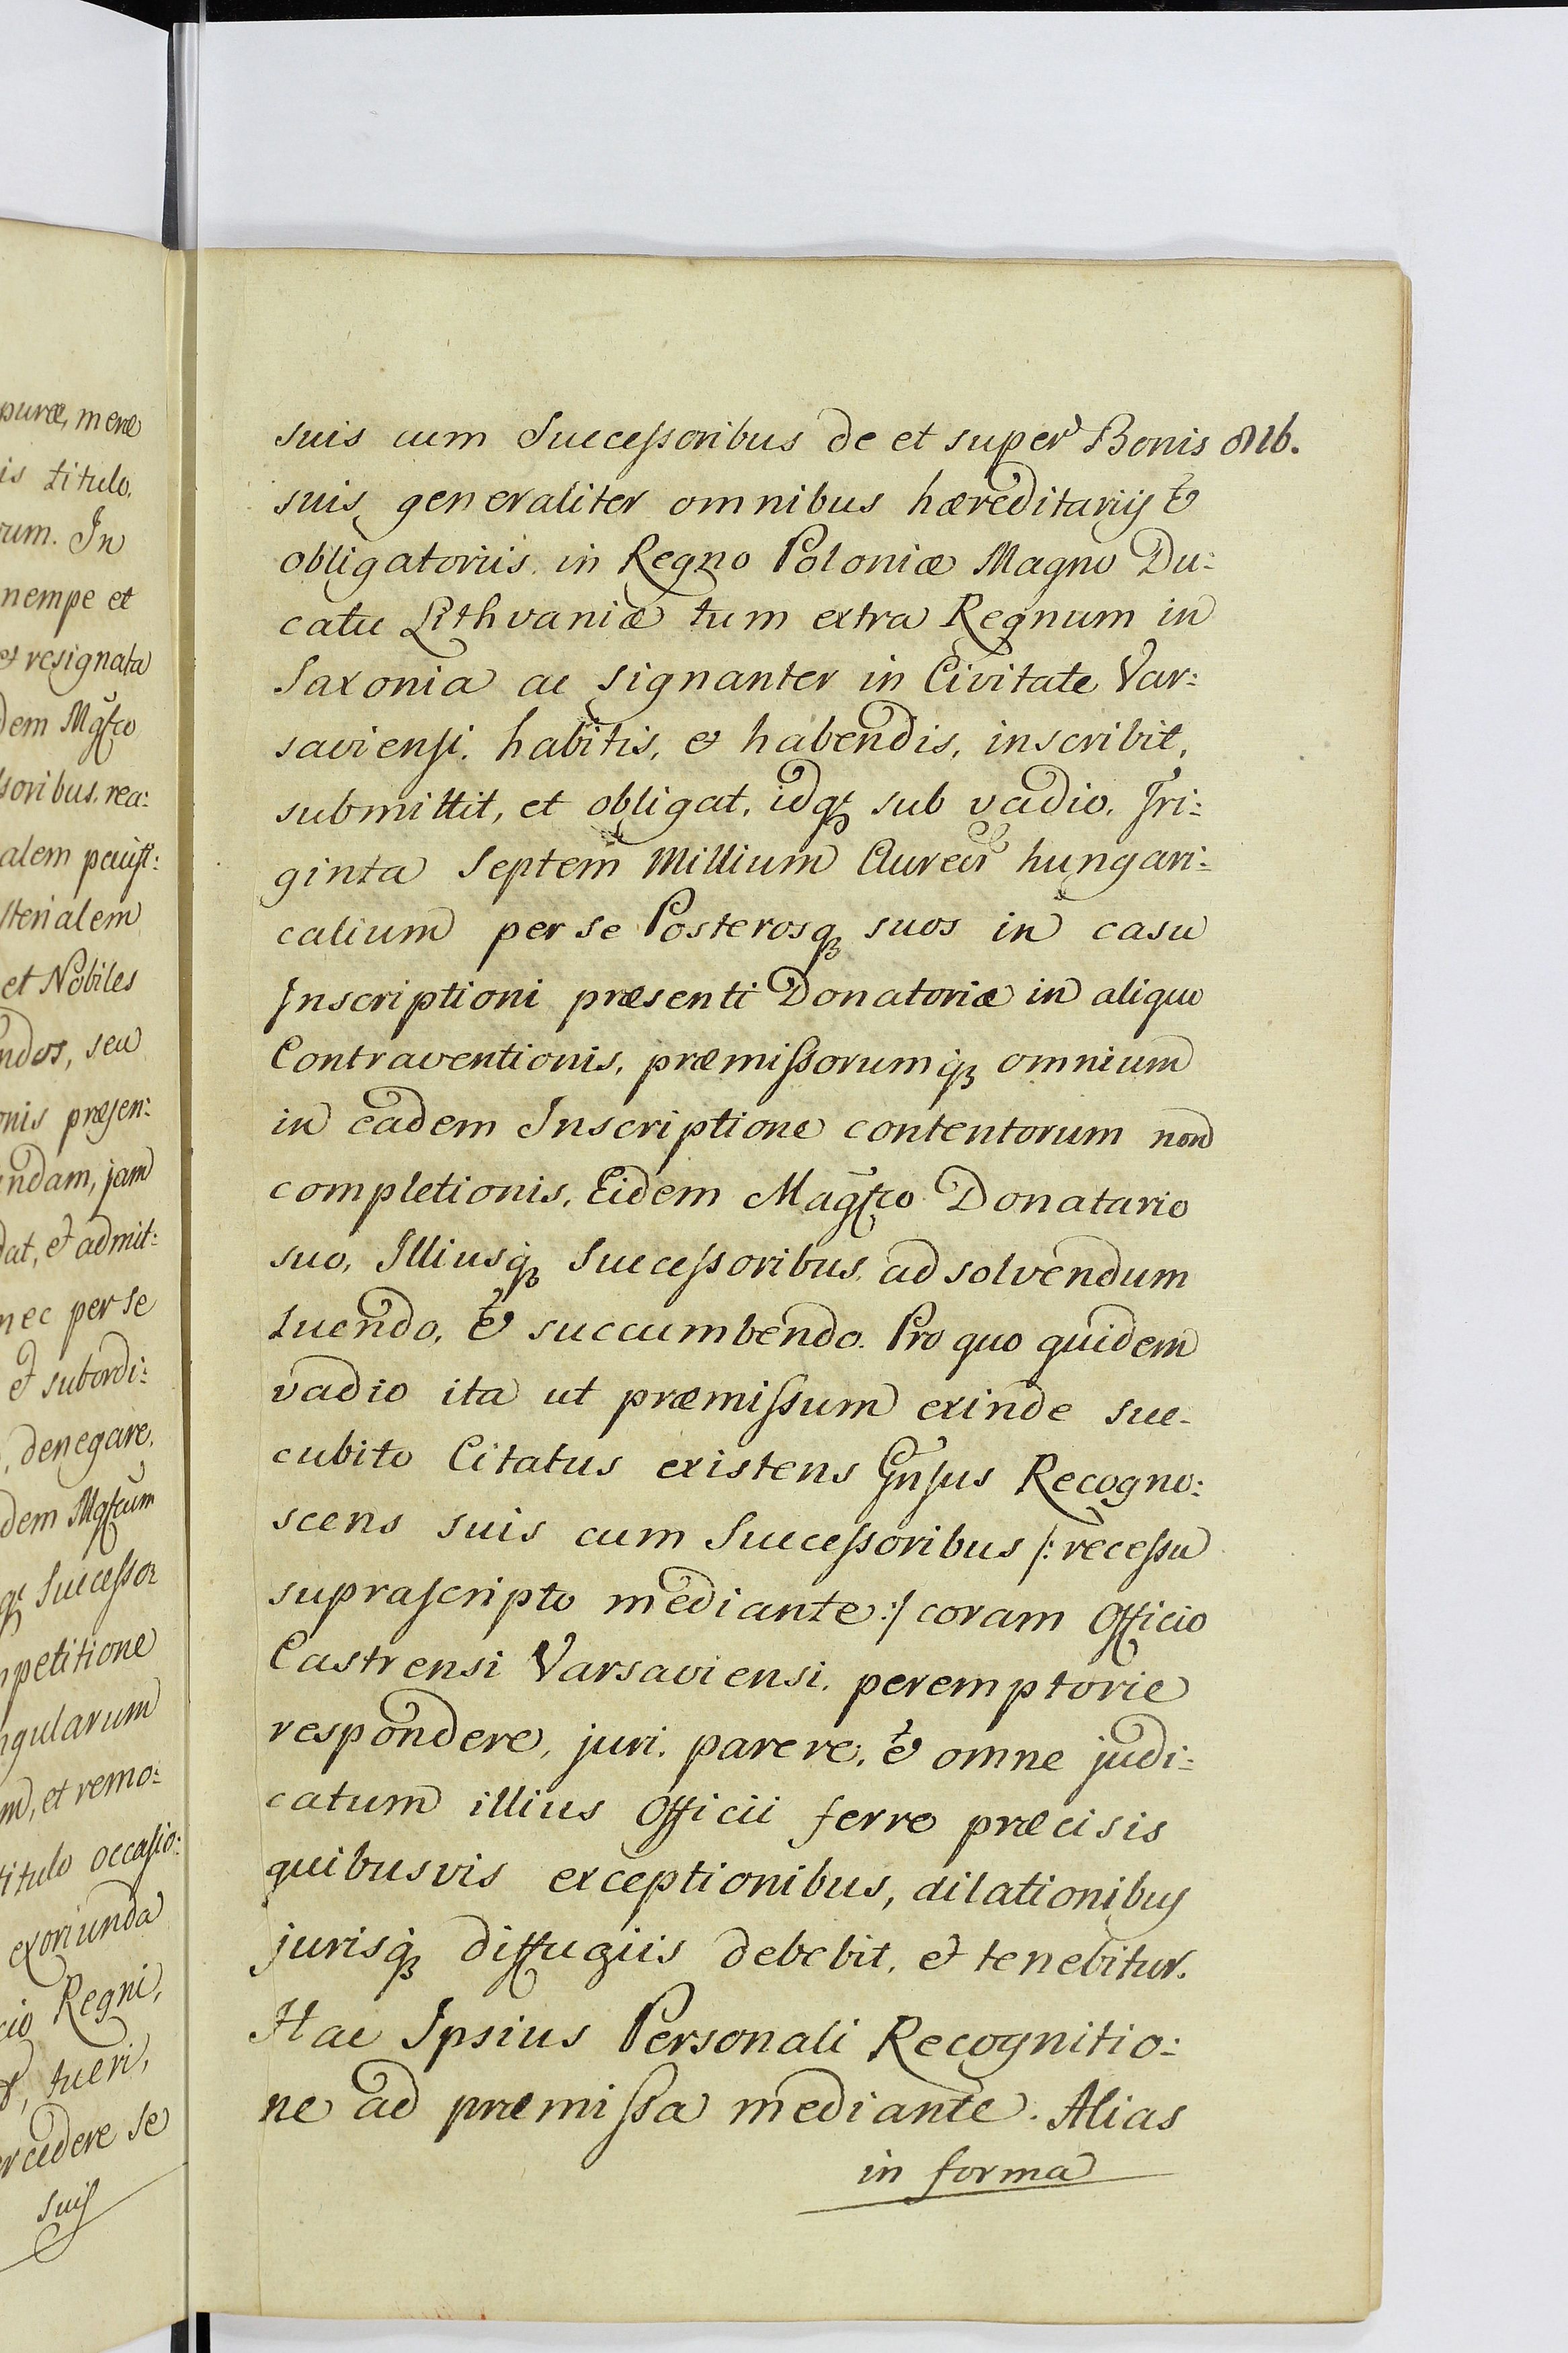 puræ, meræ
is titulo,
rum. In
nempe et
et resignata
dem Mgfco
soribus, rea:
alem
sterialem
et Nobiles
ndos, seu
onis præsen:
endam, jam
dat, et admit:
nec per se
et subordi:
, denegare,
dem Mgfcum
Successor
petitione
ngularum
m, et remo:
titulo occasio:
exoriunda
cio Regni,
, tueri,
ercedere se
suis
suis cum Successoribus de et super Bonis omnib.
suis generaliter omnibus hæreditariis et
obligatoriis in Regno Poloniæ Magno Du:
catu Lithvaniæ tum extra Regnum in
Saxonia ac signanter in Civitate Var:
saviensi, habitis, et habendis, inscribit,
submittit, et obligat, idq; sub vadio, Tri:
ginta Septem Millium Aureor hungari:
calium per se Posterosq; suos in casu
Inscriptioni præsenti Donatoriæ in aliquo
Contraventionis, præmissorumq; omnium
in eadem Inscriptione contentorum non
completionis, Eidem Magfco Donatario
suo, Illiusq; Successoribus, ad solvendum
luendo, et succumbendo. Pro quo quidem
vadio ita ut præmissum exinde suc-
cubito Citatus existens Gnsus Recogno:
scens suis cum Successoribus /: recessu
suprascripto mediante :/ coram Officio
Castrensi Varsaviensi, peremptorie
respondere, juri, parere, et omne judi:
catum illius Officii ferre præcisis
quibusvis exceptionibus, dilationibus
jurisq; diffugiis debebit, et tenebitur.
Hac Ipsius Personali Recognitio:
ne ad præmissa mediante. Alias
in forma